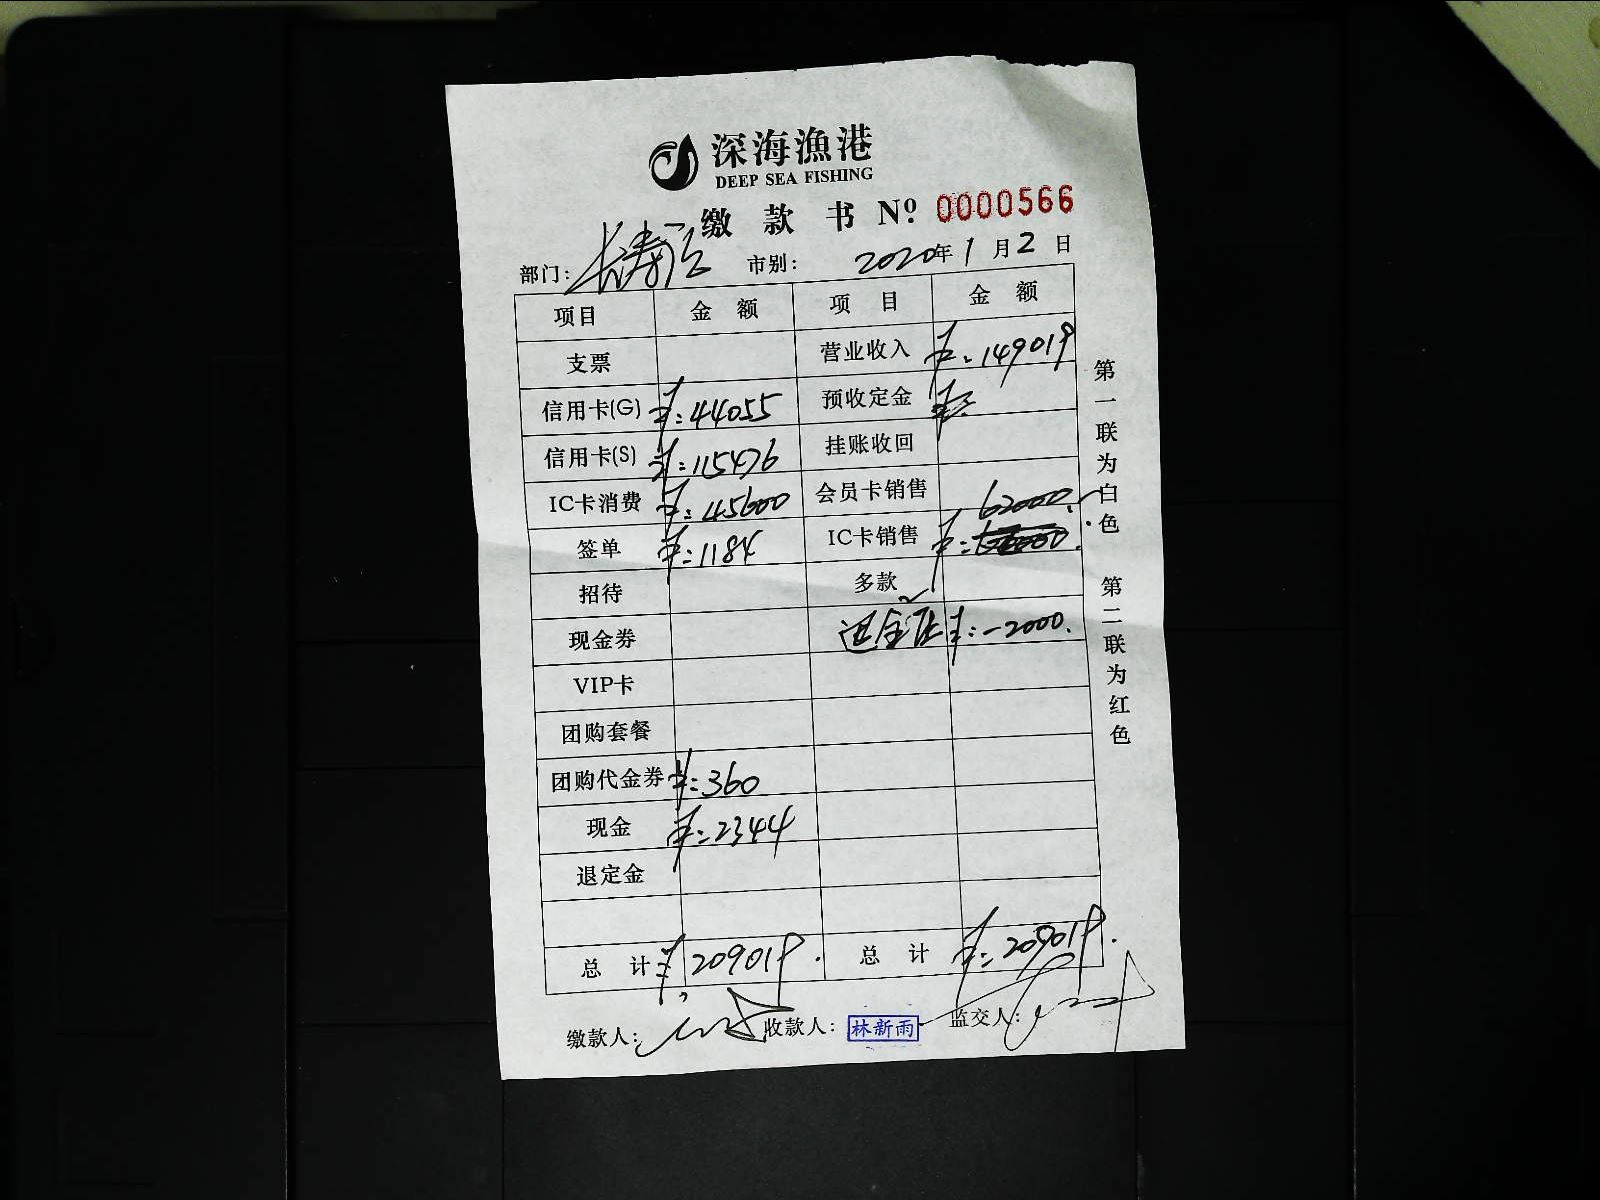 深海漁港
DEEP SEA FISHING
缴 款 书 Nº 0000566
部门： 市别： 2020年1月2日
项目 金 额 项 目 金 额
支票 营业收入 ¥：149019
信用卡(G) ¥：44055 预收定金
信用卡(S) ¥：115476 挂账收回
IC卡消费 ¥：45600 会员卡销售 62000.
签单 ¥：1184 IC卡销售 ¥：
招待 多款
现金券 ¥：-2000.
VIP卡
团购套餐
团购代金券 ¥：360
现金 ¥：2344
退定金
总 计 ¥：209019. 总 计 ¥：209019.
缴款人： 收款人： 林新雨 监交人：
第一联为白色 第二联为红色